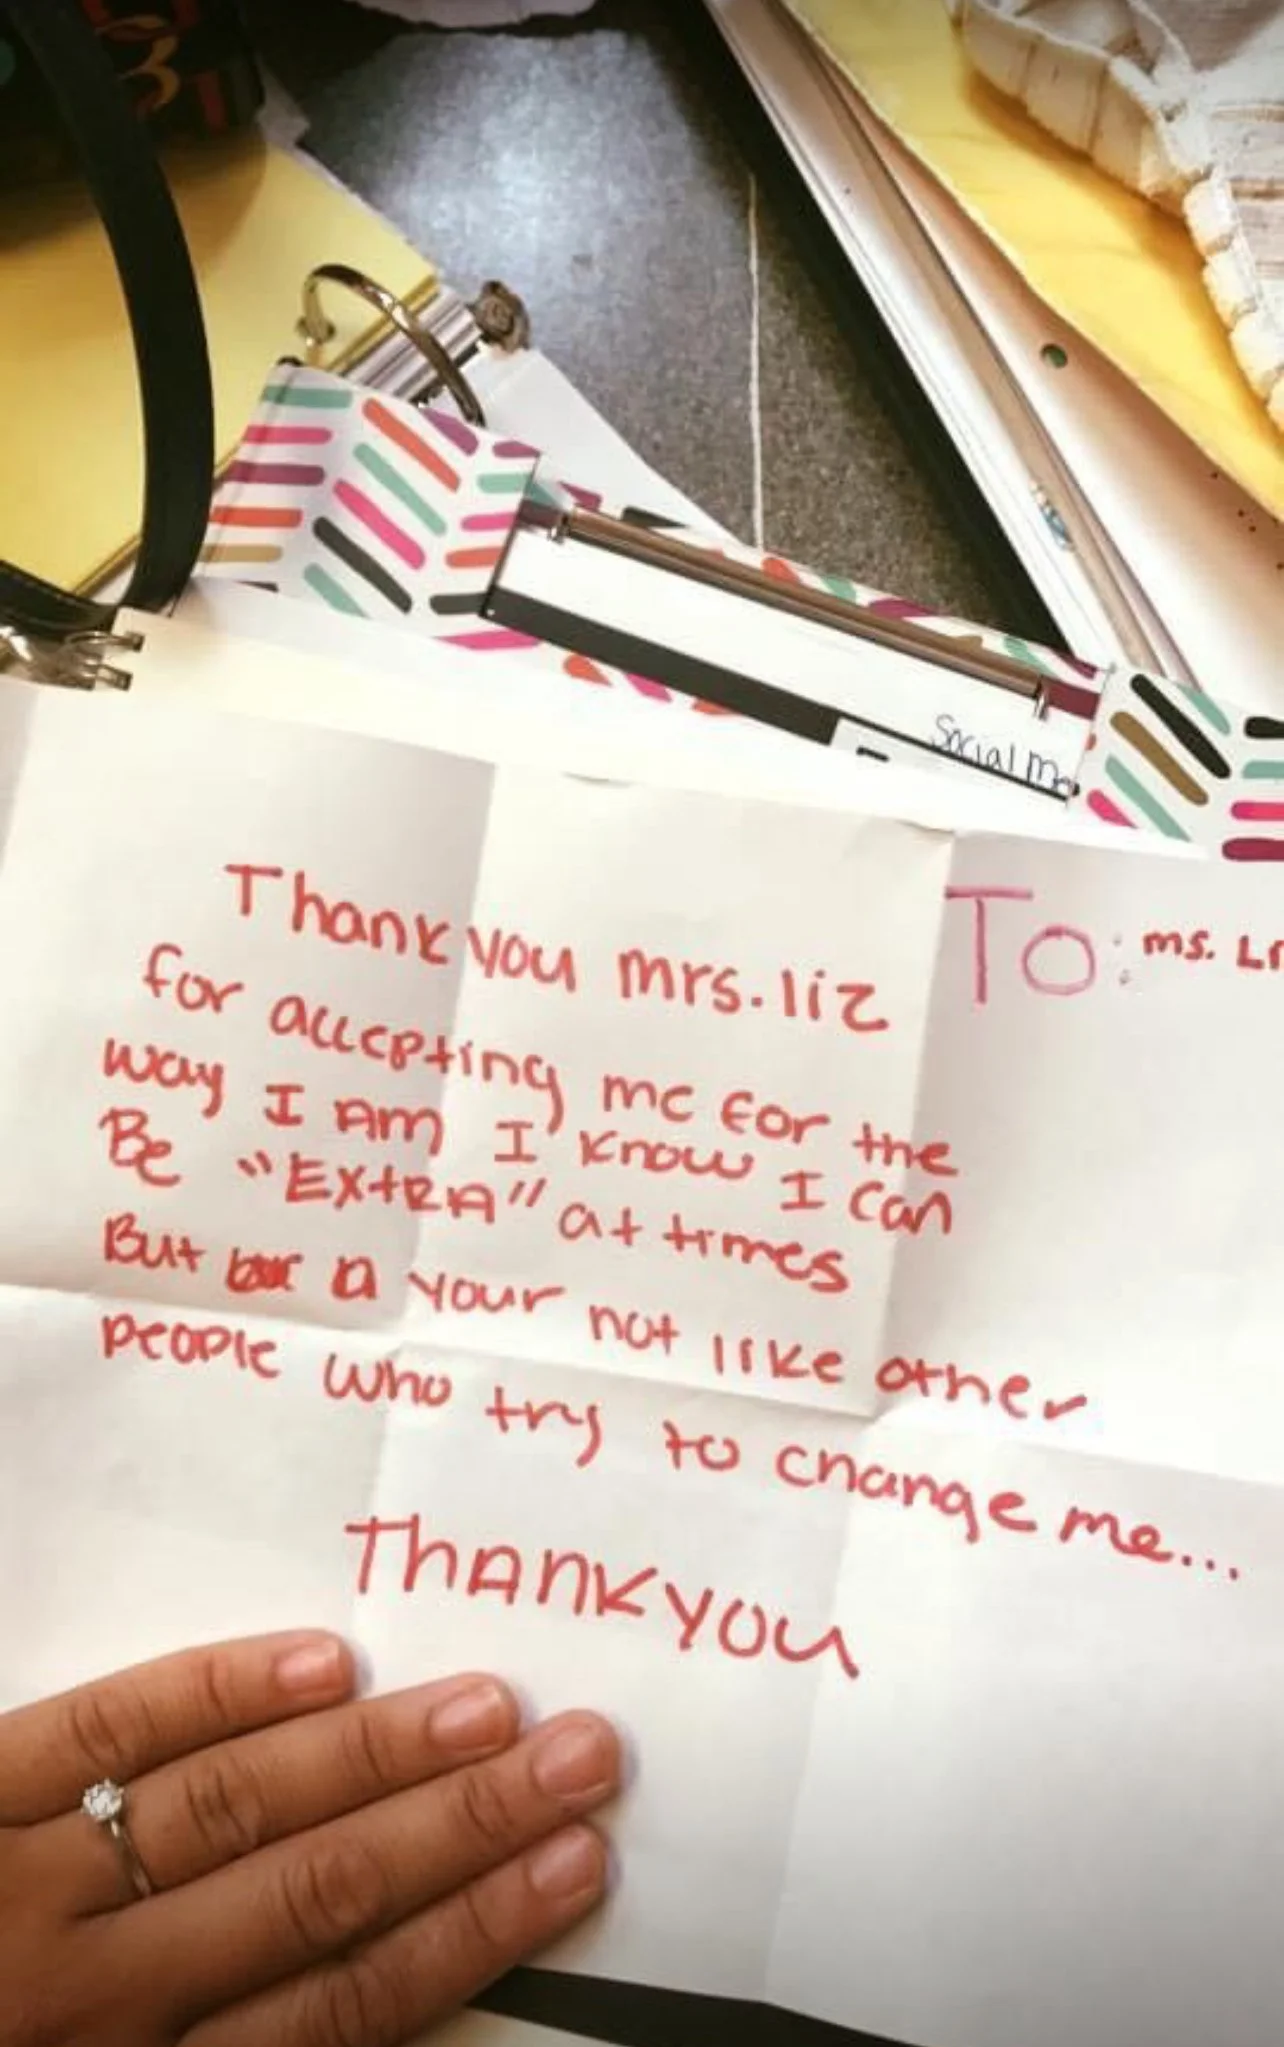 Social Me
Thank you mrs. liz
for accepting me for the
way I Am I Know I can
Be "ExtRA" at times
But a your not like other
people who try to change me...
ThAnk you
To: ms. Li